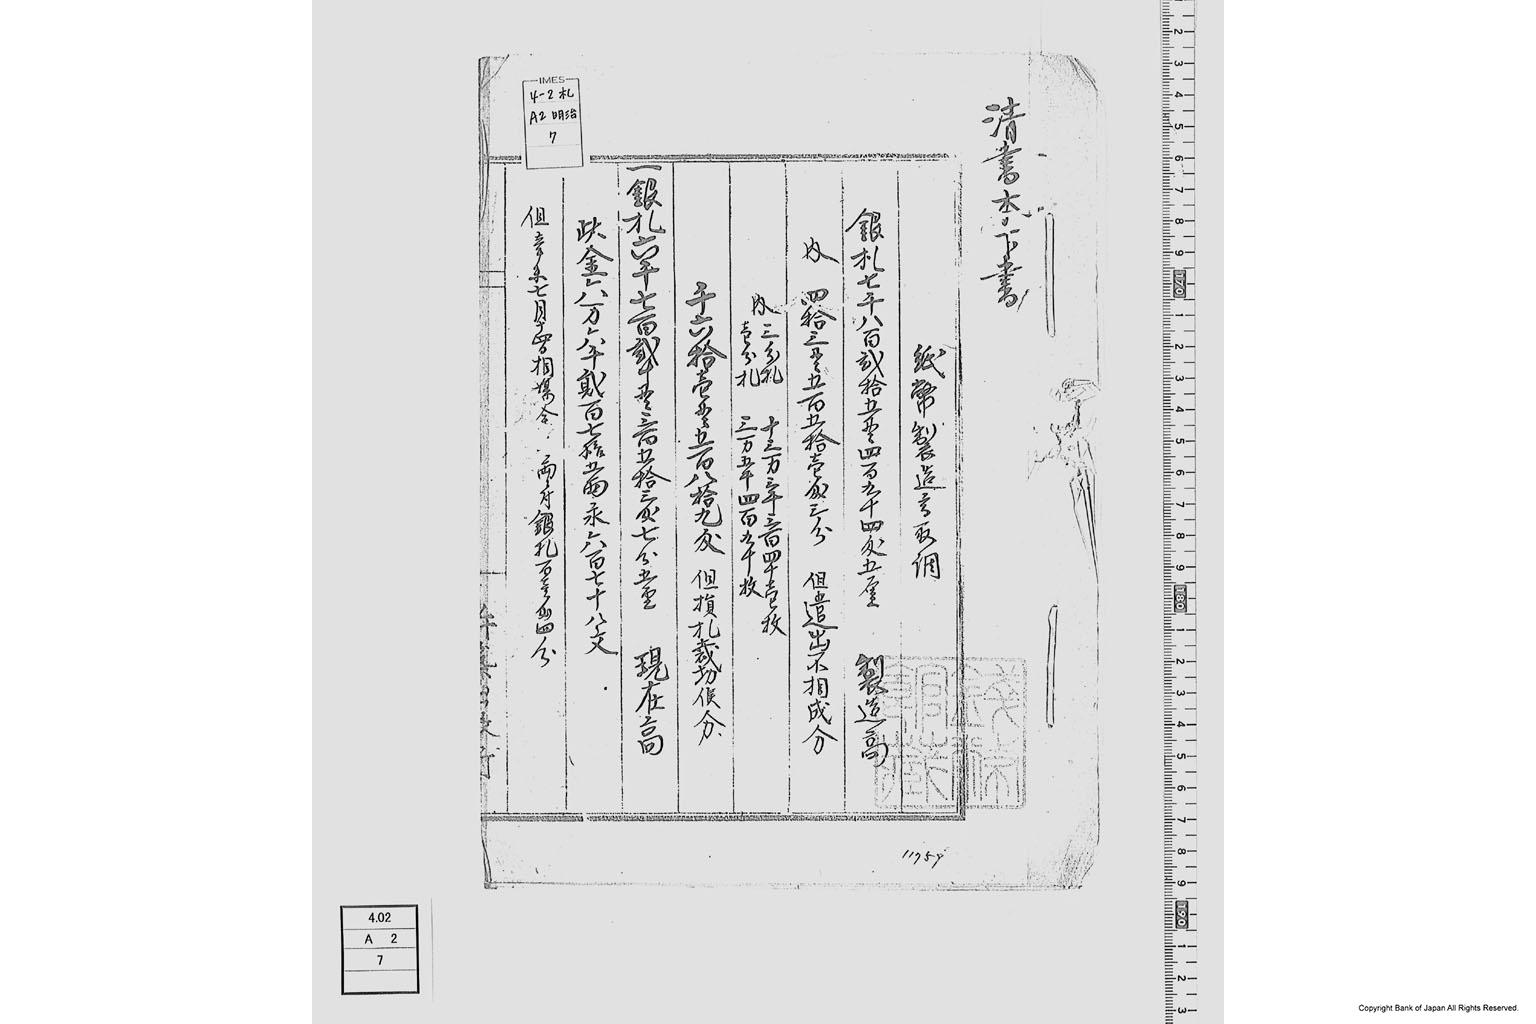 清書本下書
紙幣製造高取調
銀札七千八百貳拾五貫四百九十四匁五厘 製造高
内 四拾三貫五百五拾壱匁三分 但遣出不相成分
内 三分札 十三万三千三百四十壱枚
壱分札 三万五千四百九十枚
千六拾壱貫五百八拾九匁 但損札裁切候分
一銀札六千七百貳十貫三百五拾三匁七分五厘 現在高
此金六万六千貳百七拾五両永六百七十八文
但 七月 相場金 両ニ付銀札百壱匁四分
IMES
4-2 札
A2 明治
7
11759
4.02
A 2
7
Copyright Bank of Japan All Rights Reserved.